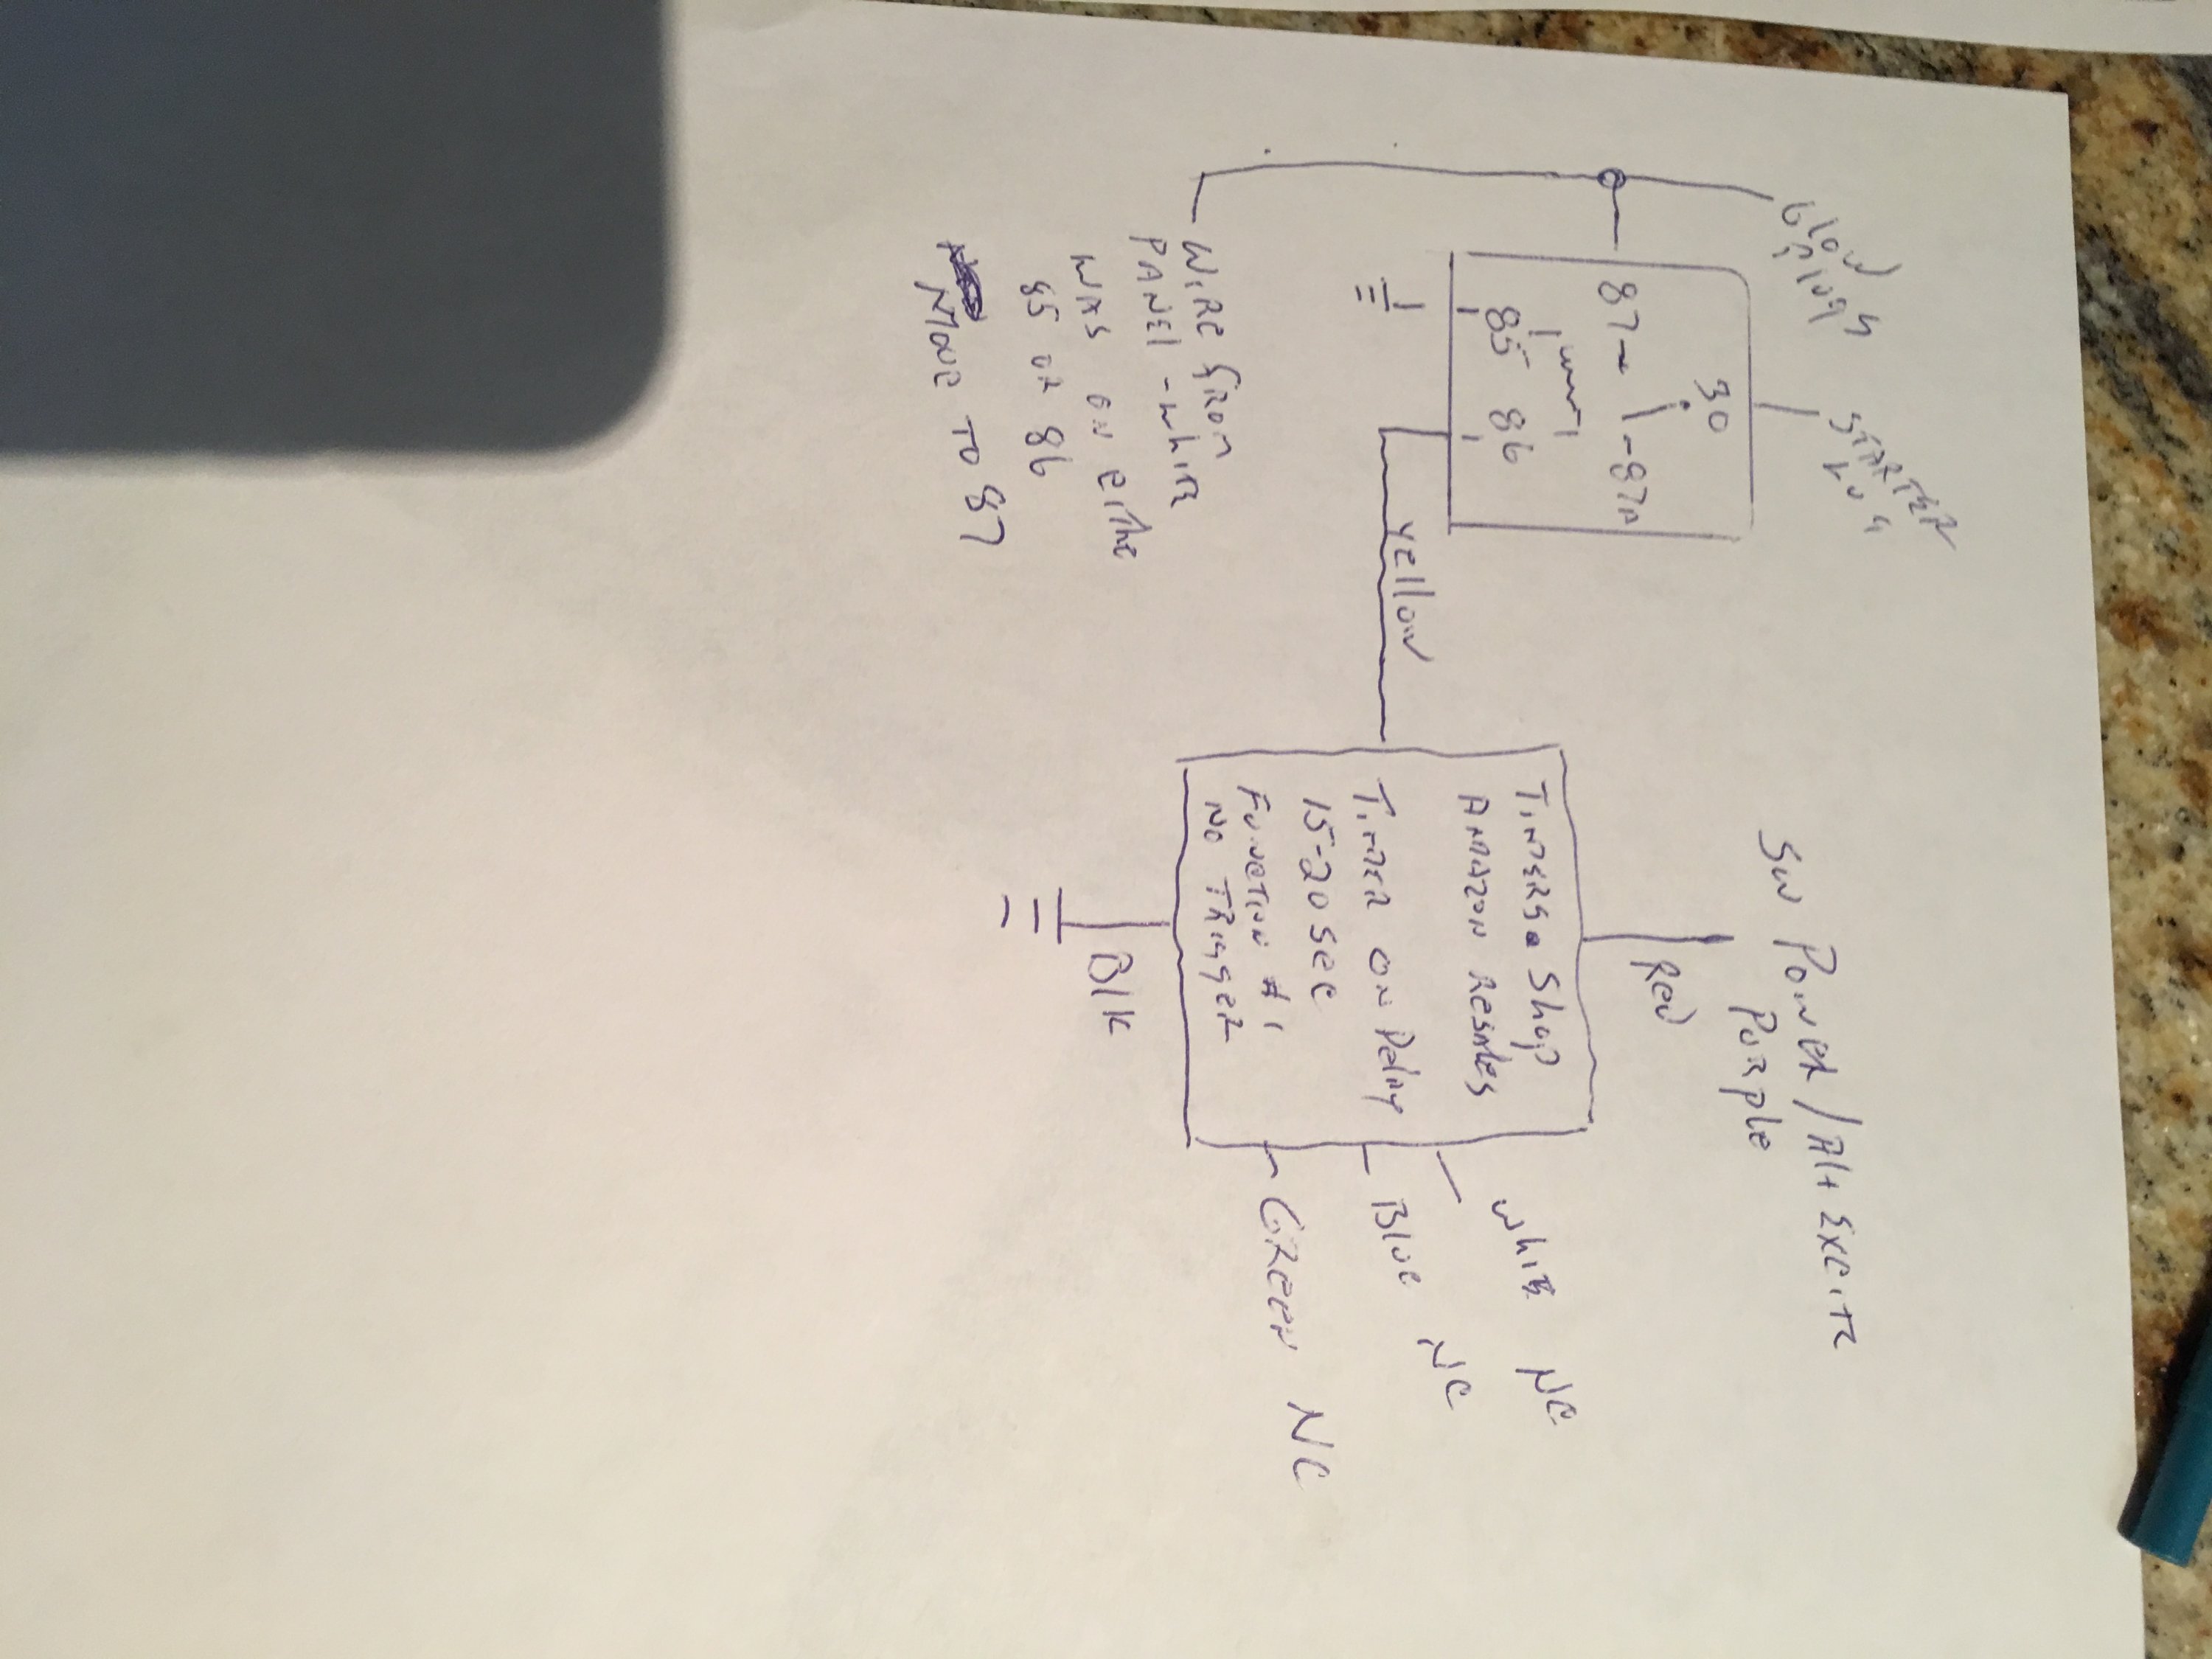 Glow
Plugs
STARTER
30
87
-87A
85 86
YELLOW
WIRE FROM
PANEL - White
WAS ON EITHE
85 OR 86
MOVE TO 87
SW POWER / Alt EXCITE
PURPLE
Red
TIMERS Shop
AMAZON Resales
TIMER ON Delay
15-20 SEC
FUNCTIN #1
NO TRIGGER
Blk
White NC
Blue NC
GREEN NC